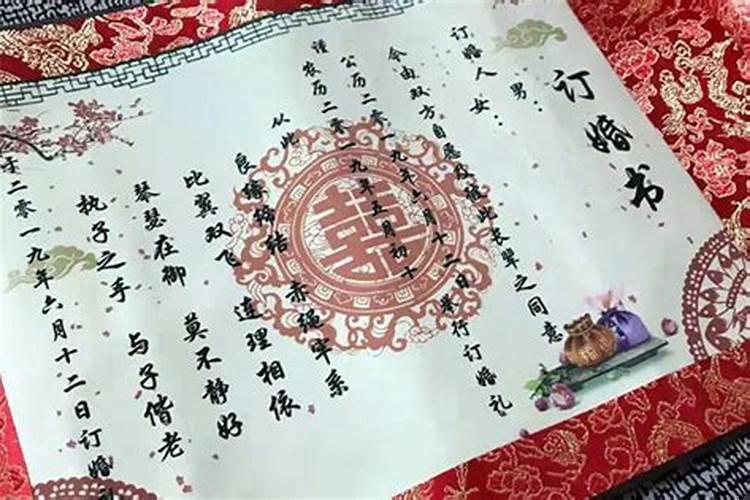 订婚书
订婚人 男：
女：
今由双方自愿及得此长辈之同意
公历二零一九年六月十二日举行订婚礼
谨农历二零一九年五月初十
从此 良缘缔结 赤绳牢系
比翼双飞 连理相依
琴瑟在御 莫不静好
执子之手 与子偕老
于二零一九年六月十二日订婚